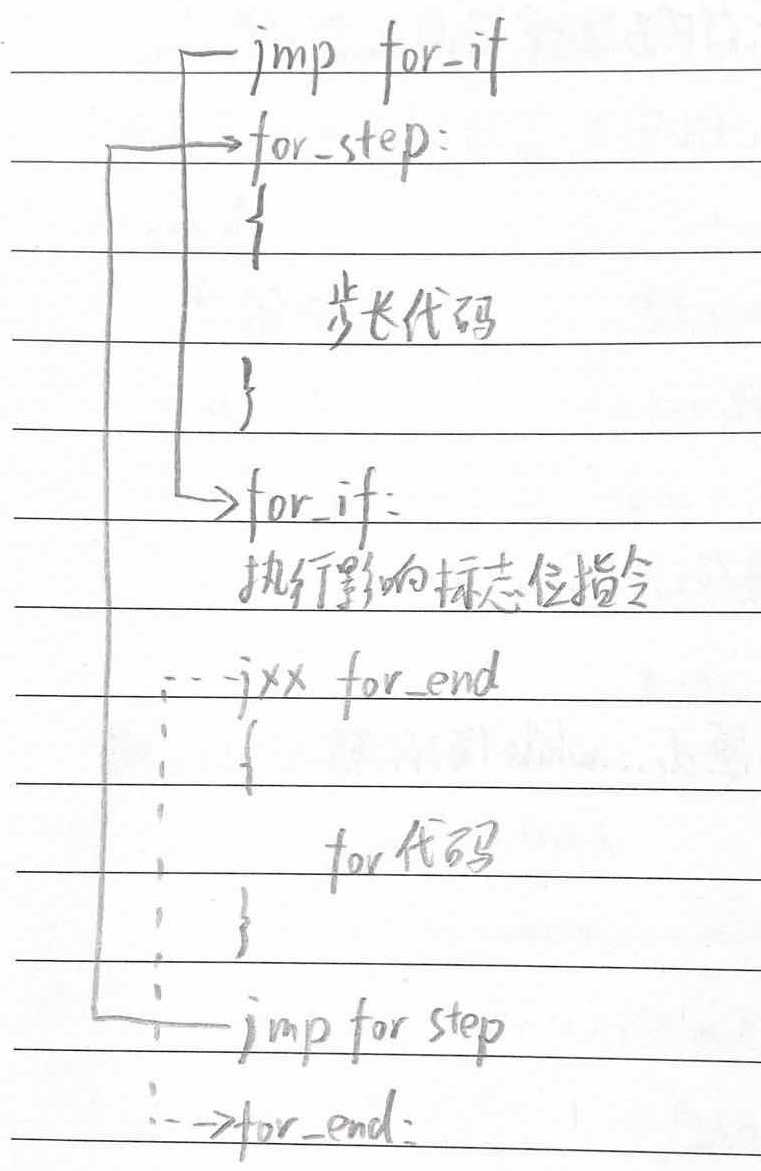 jmp for_if
for_step:
{
步长代码
}
for_if:
执行影响标志位指令
jxx for_end
{
for代码
}
jmp for step
for_end: